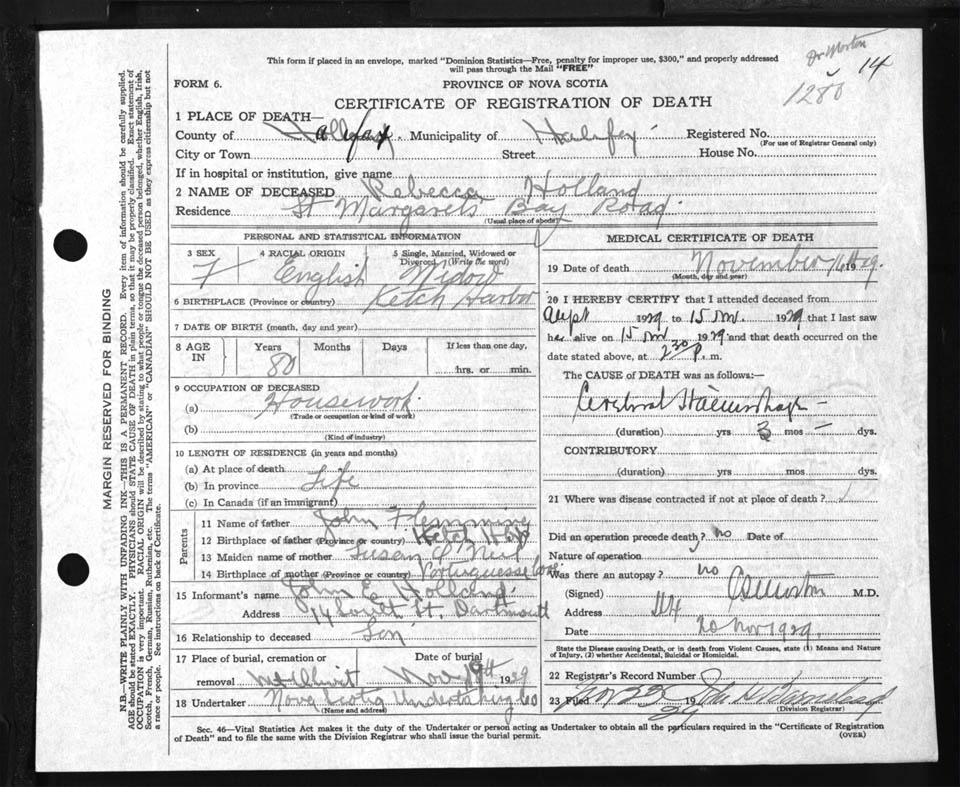 Dr Morton
14
1280
This form if placed in an envelope, marked "Dominion Statistics—Free, penalty for improper use, $300," and properly addressed
will pass through the Mail "FREE"
FORM 6.
PROVINCE OF NOVA SCOTIA
CERTIFICATE OF REGISTRATION OF DEATH
1 PLACE OF DEATH—
County of Halifax. Municipality of Halifax Registered No.
(For use of Registrar General only)
City or Town Street House No.
If in hospital or institution, give name
2 NAME OF DECEASED Rebecca Holland
Residence St Margarets Bay Road
(Usual place of abode)
PERSONAL AND STATISTICAL INFORMATION
3 SEX 4 RACIAL ORIGIN 5 Single, Married, Widowed or
Divorced (Write the word)
F English Widow
6 BIRTHPLACE (Province or country) Ketch Harbor
7 DATE OF BIRTH (month, day and year)
8 AGE IN Years Months Days If less than one day,
80 hrs. or min.
9 OCCUPATION OF DECEASED
(a) Housework
(Trade or occupation or kind of work)
(b)
(Kind of industry)
10 LENGTH OF RESIDENCE (in years and months)
(a) At place of death
(b) In province Life
(c) In Canada (if an immigrant)
Parents
11 Name of father John Flemming
12 Birthplace of father (Province or country) Ketch Har
13 Maiden name of mother Susan O'Neil
14 Birthplace of mother (Province or country) Portuguesse Cove
15 Informant's name John E Holland
Address 14 South St. Dartmouth
16 Relationship to deceased Son
17 Place of burial, cremation or removal Date of burial
Mt Olivet Nov 19th 1929
18 Undertaker Nova Scotia Undertaking Co
(Name and address)
MEDICAL CERTIFICATE OF DEATH
19 Date of death November 16th 1929.
(Month, day and year)
20 I HEREBY CERTIFY that I attended deceased from
Sept 1929 to 15 Nov. 1929 that I last saw
her alive on 15 Nov 1929 and that death occurred on the
date stated above, at 2 30 P. m.
The CAUSE OF DEATH was as follows:—
Cerebral Haemorrhage -
(duration) yrs 3 mos — dys.
CONTRIBUTORY
(duration) yrs. mos. dys.
21 Where was disease contracted if not at place of death?
Did an operation precede death? no Date of
Nature of operation
Was there an autopsy? no
(Signed) Morton M.D.
Address
Date 20 Nov 1929.
State the Disease causing Death, or in death from Violent Causes, state (1) Means and Nature
of Injury, (2) whether Accidental, Suicidal or Homicidal.
22 Registrar's Record Number
23 Filed Nov 22 1929 John H
(Division Registrar)
Sec. 46—Vital Statistics Act makes it the duty of the Undertaker or person acting as Undertaker to obtain all the particulars required in the "Certificate of Registration
of Death" and to file the same with the Division Registrar who shall issue the burial permit.
(OVER)
MARGIN RESERVED FOR BINDING
N.B.—WRITE PLAINLY WITH UNFADING INK—THIS IS A PERMANENT RECORD. Every item of information should be carefully supplied.
AGE should be stated EXACTLY. PHYSICIANS should STATE CAUSE OF DEATH in plain terms, so that it may be properly classified. Exact statement of
OCCUPATION is very important. RACIAL ORIGIN will be described by stating to what people or tongue the deceased person belonged, whether English, Irish,
Scotch, French, German, Russian, Ruthenian, etc. The terms "AMERICAN" or "CANADIAN" SHOULD NOT BE USED as they express citizenship but not
a race or people. See instructions on back of Certificate.